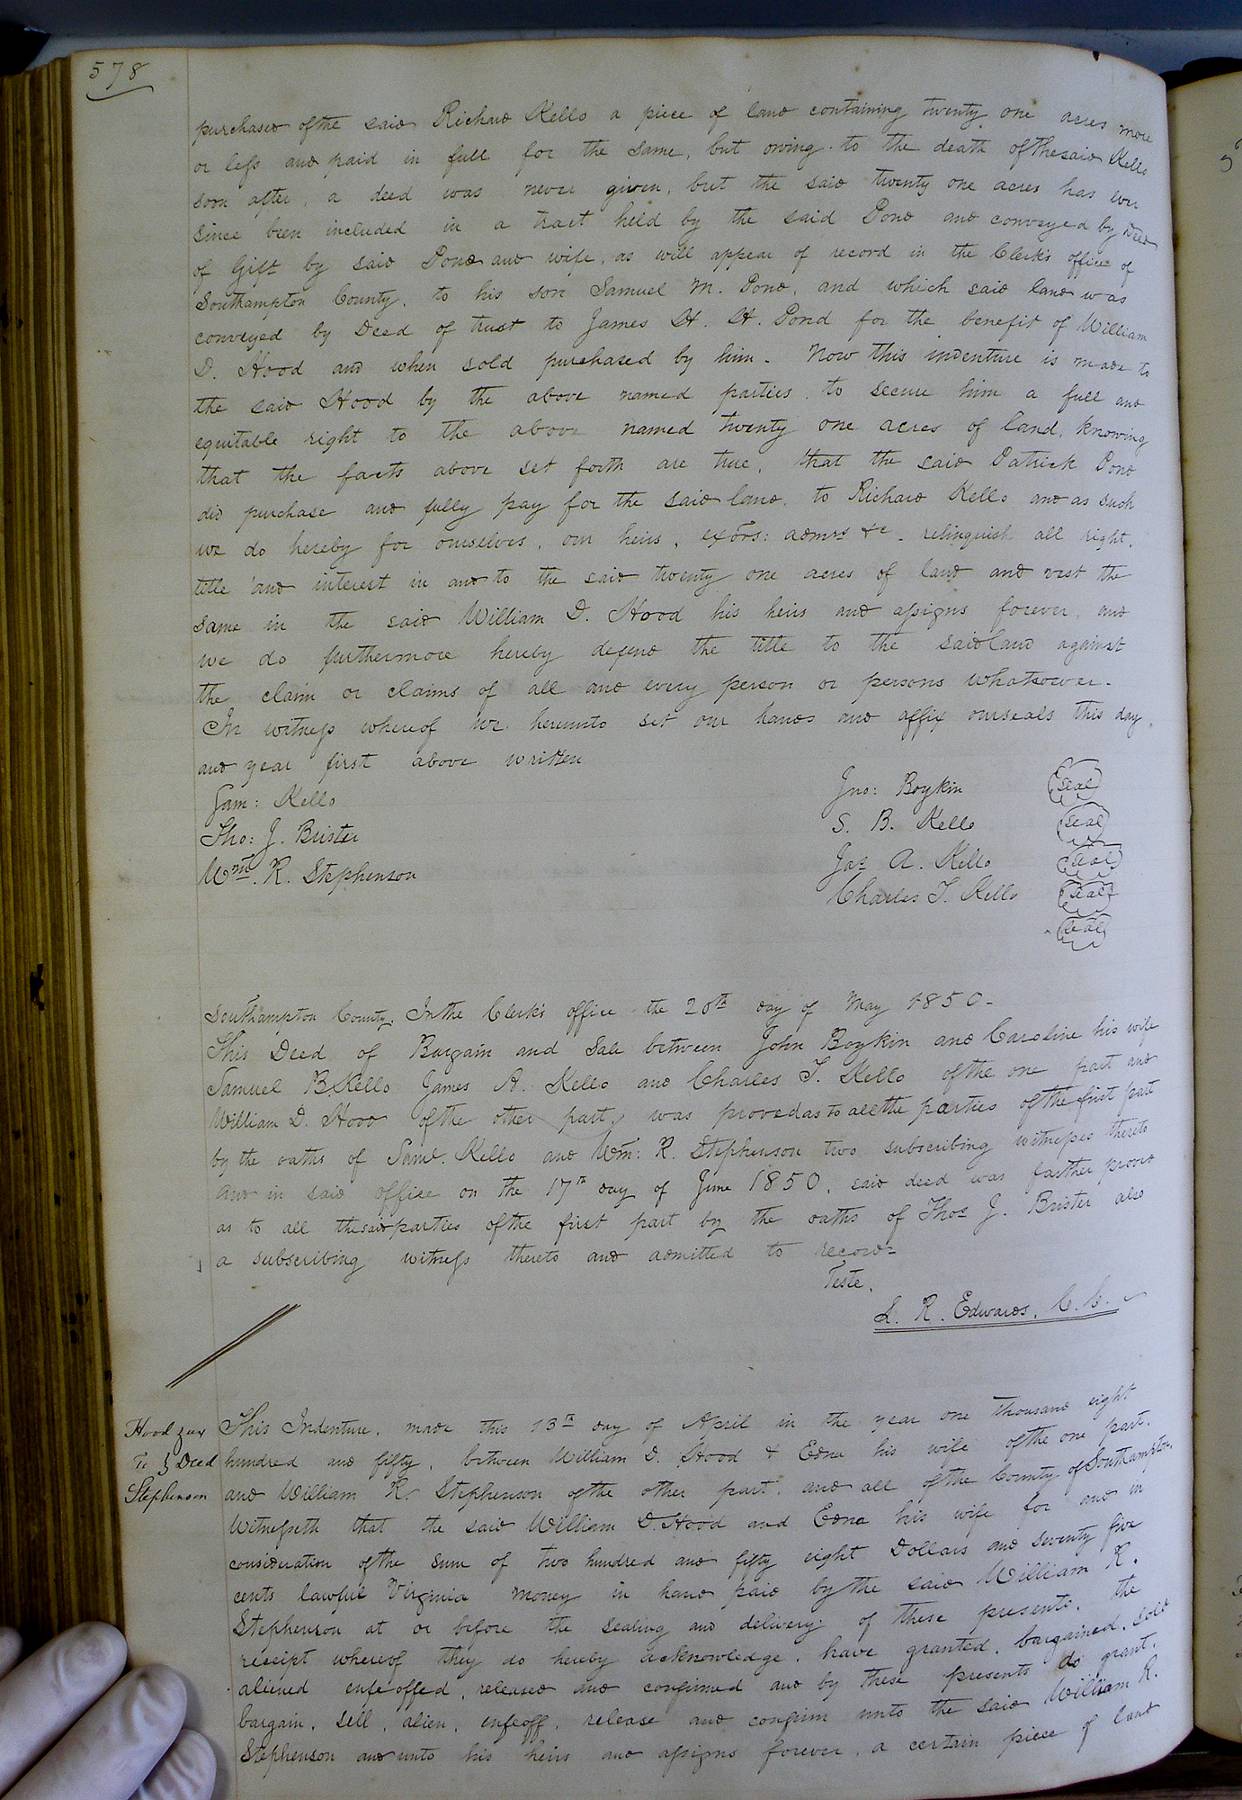 578
purchased of the said Richard Kello a piece of land containing twenty one acres more
or less and paid in full for the same, but owing to the death of the said Kello
soon after, a deed was never given, but the said twenty one acres has ever
since been included in a tract held by the said Pond and conveyed by Deed
of Gift by said Pond and wife, as will appear of record in the Clerk's office of
Southampton County, to his son Samuel M. Pond, and which said land was
conveyed by Deed of trust to James H. H. Pond for the benefit of William
D. Hood and when sold purchased by him. Now this indenture is made to
the said Hood by the above named parties, to secure him a full and
equitable right to the above named twenty one acres of land, knowing
that the facts above set forth are true, that the said Patrick Pond
did purchase and fully pay for the said land, to Richard Kello and as such
we do hereby for ourselves, our heirs, exōrs: admrs &c. relinquish all right,
title and interest in and to the said twenty one acres of land and vest the
same in the said William D. Hood his heirs and assigns forever, and
we do furthermore hereby defend the title to the said land against
the claim or claims of all and every person or persons whatsoever.
In witness whereof we hereunto set our hands and affix our seals this day
and year first above written
Sam: Kello
Jno: Boykin (seal)
Tho: J. Brister
S. B. Kello (seal)
Wm. R. Stephenson
Jas A. Kello (seal)
Charles T. Kello (seal)
(seal)
Southampton County. In the Clerk's office the 20th day of May 1850-
This Deed of Bargain and Sale between John Boykin and Caroline his wife
Samuel B. Kello James A. Kello and Charles T. Kello of the one part and
William D. Hood of the other part, was proved as to all the parties of the first part
by the oaths of Saml. Kello and Wm: R. Stephenson two subscribing witnesses thereto
And in said office on the 17th day of June 1850, said deed was farther proved
as to all the said parties of the first part by the oaths of Thos J. Brister also
a subscribing witness thereto and admitted to record
Teste,
L. R. Edwards, C. C.
Hood & ux
To } Deed
Stephenson
This Indenture, made this 13th day of April in the year one thousand eight
hundred and fifty, between William D. Hood & Edna his wife of the one part,
and William R. Stephenson of the other part, and all of the County of Southampton,
Witnesseth that the said William D. Hood and Edna his wife for and in
consideration of the sum of two hundred and fifty eight Dollars and seventy five
cents lawful Virginia money in hand paid by the said William R.
Stephenson at or before the sealing and delivery of these presents, the
receipt whereof they do hereby acknowledge, have granted, bargained, sold
aliened enfeoffed, released and confirmed and by these presents do grant,
bargain, sell, alien, enfeoff, release and confirm unto the said William R.
Stephenson and unto his heirs and assigns forever, a certain piece of land